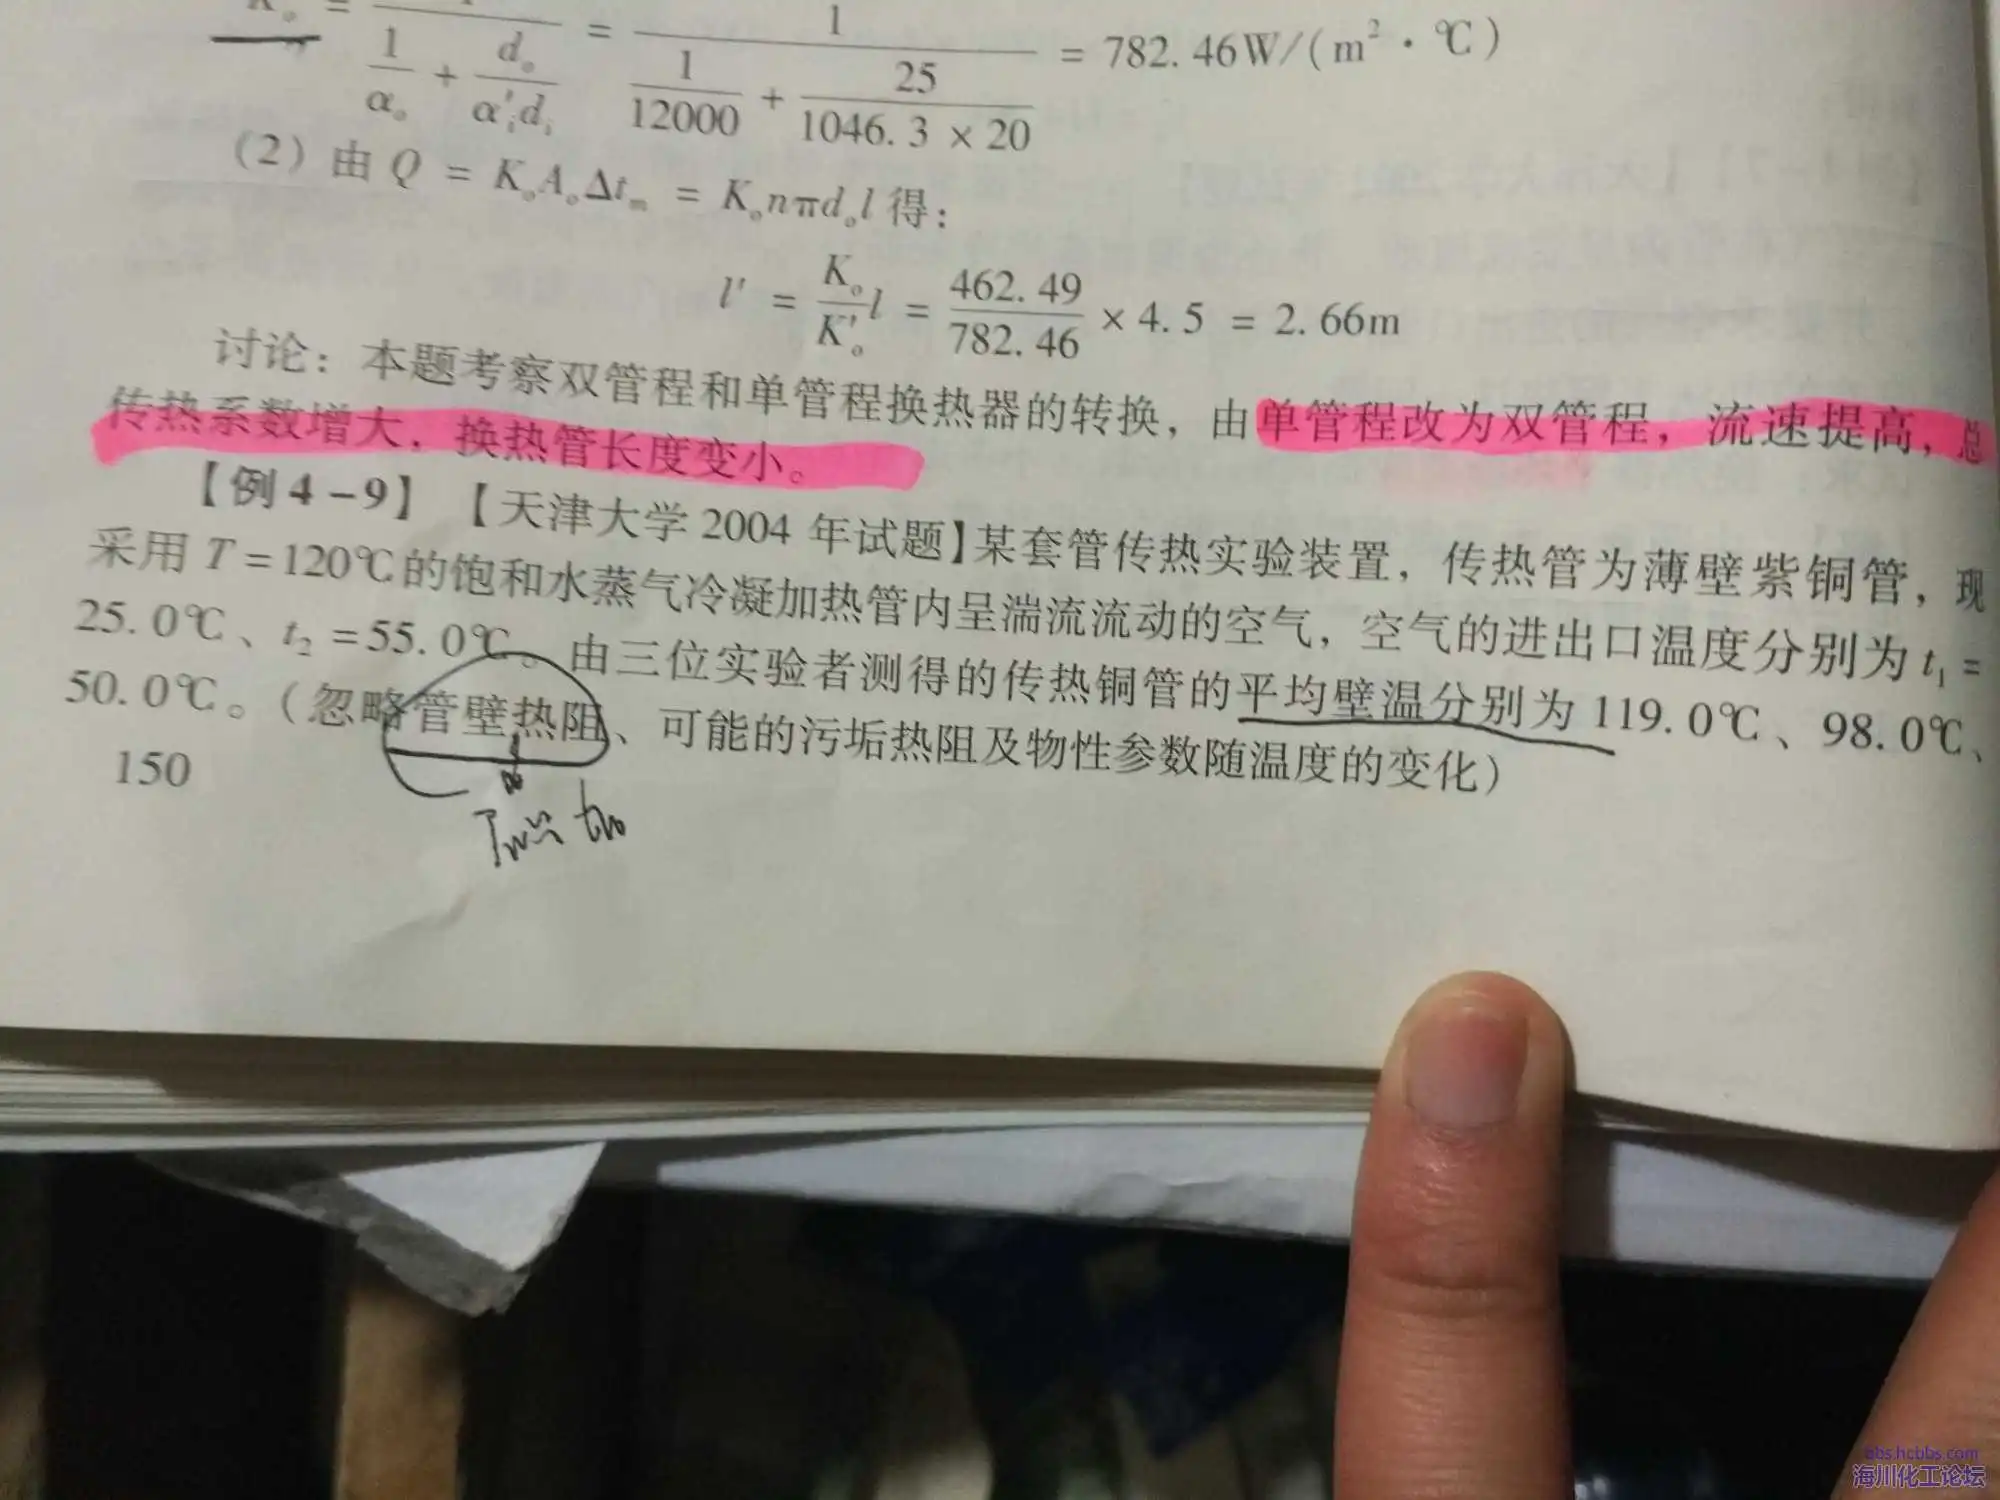 K。 = 1/(1/α。 + d。/(α′ᵢdᵢ)) = 1/(1/12000 + 25/(1046.3 × 20)) = 782.46W/(m²·℃)
(2) 由 Q = K。A。Δtₘ = K。nπd。l 得：
l′ = K。/K′。 l = 462.49/782.46 × 4.5 = 2.66m
讨论：本题考察双管程和单管程换热器的转换，由单管程改为双管程，流速提高，总
传热系数增大，换热管长度变小。
【例4-9】【天津大学2004年试题】某套管传热实验装置，传热管为薄壁紫铜管，现
采用T=120℃的饱和水蒸气冷凝加热管内呈湍流流动的空气，空气的进出口温度分别为t₁=
25.0℃、t₂=55.0℃。由三位实验者测得的传热铜管的平均壁温分别为119.0℃、98.0℃、
50.0℃。(忽略管壁热阻、可能的污垢热阻及物性参数随温度的变化)
150
bbs.hcbbs.com
海川化工论坛